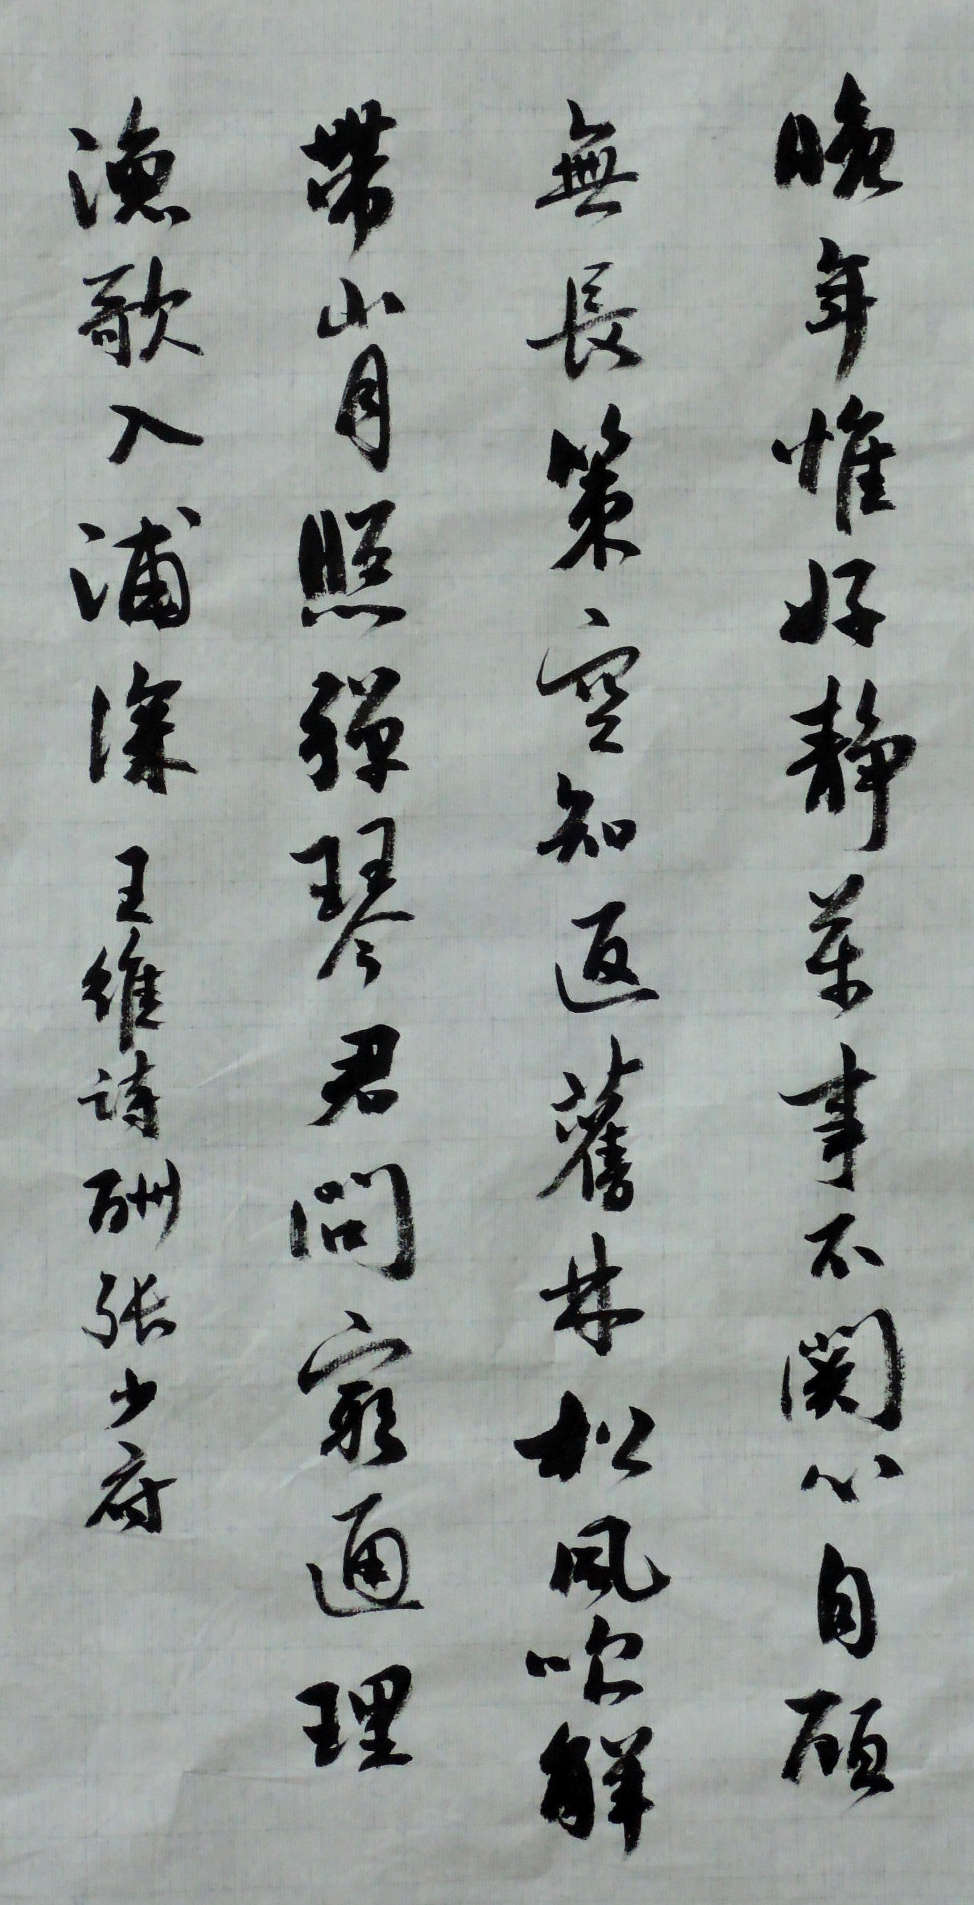 晚年惟好静萬事不関心自顧
無長策空知返舊林松風吹解
帶山月照彈琴君問窮通理
漁歌入浦深 王維詩酬張少府